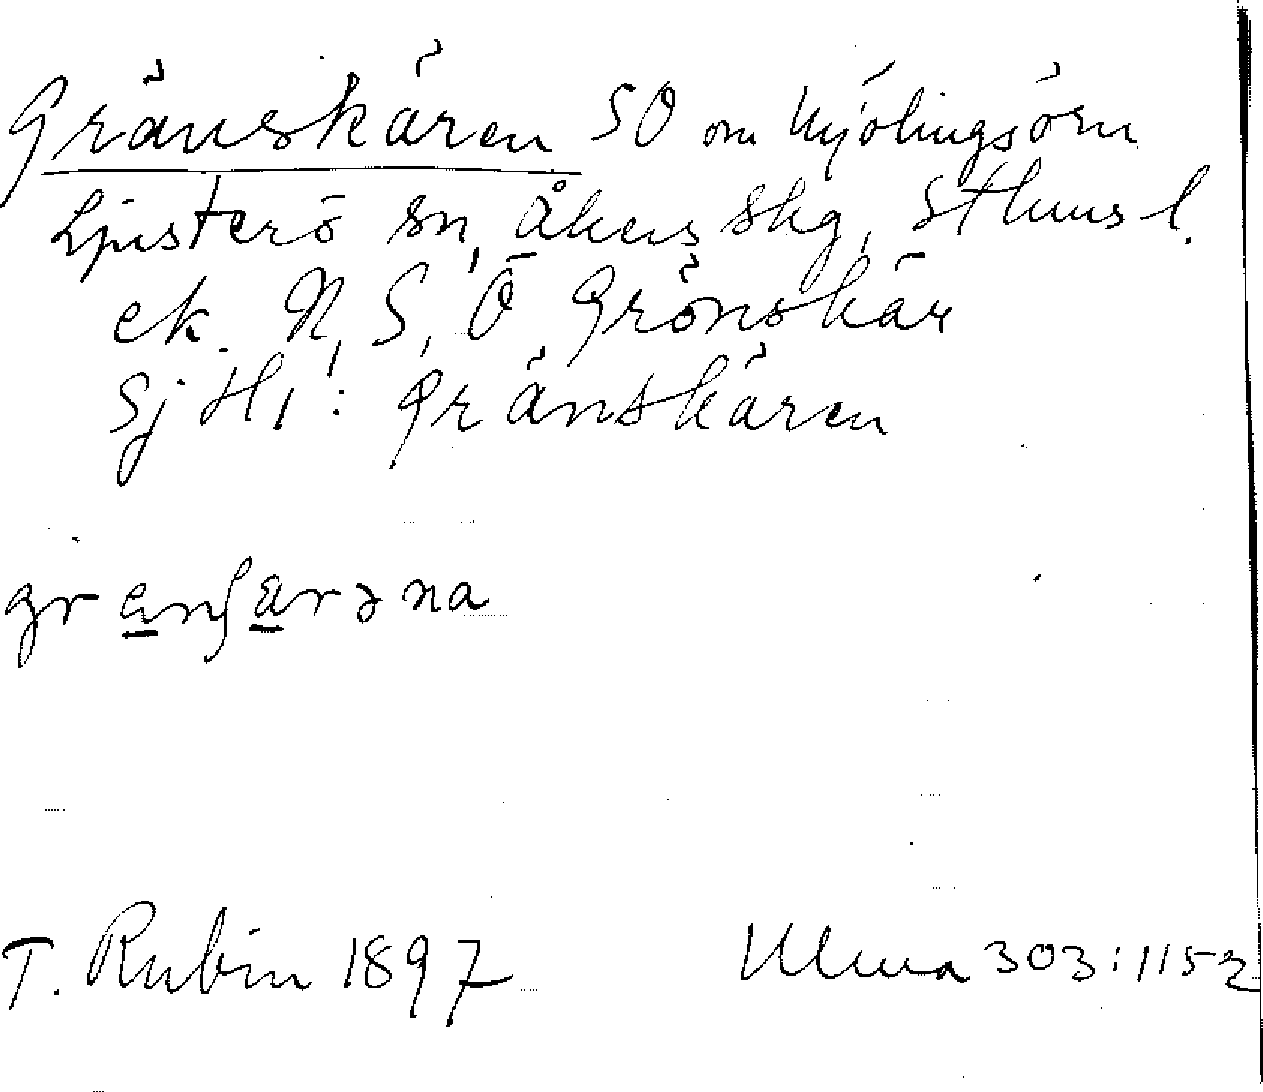 Gränskären SO om Mjölingsörn
Ljusterö sn, Åkers skg, Sthms l.
ek. N, S, Ö Grönskär
Sj H1: Gränskären
grænʃærəna
T. Rubin 1897 Uluma 303:1152